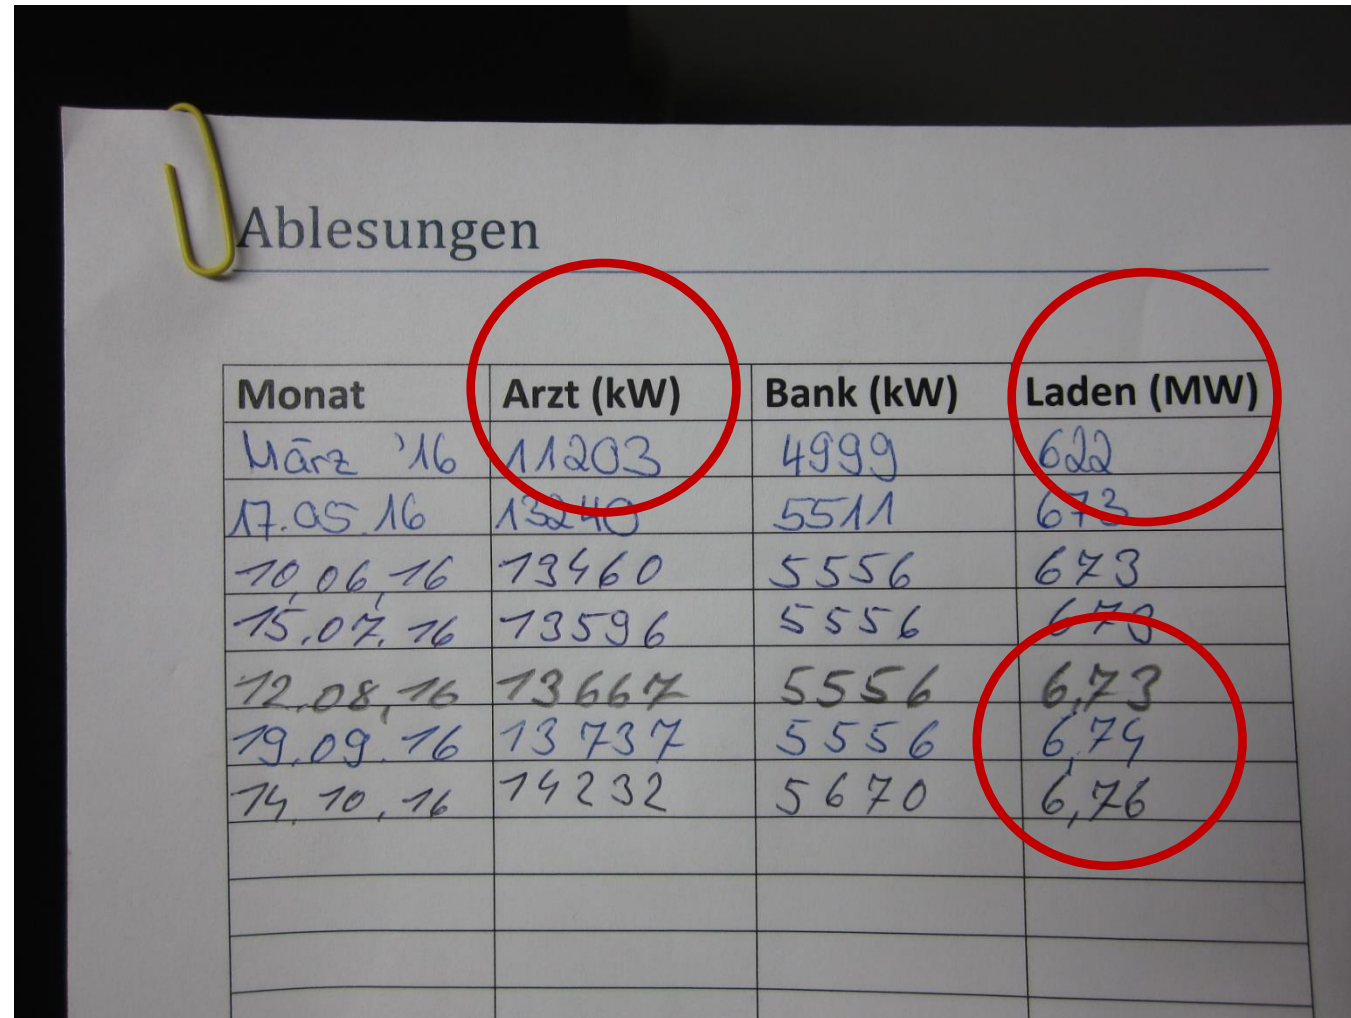 Ablesungen
Monat Arzt (kW) Bank (kW) Laden (MW)
März '16 11203 4999 622
17.05.16 13240 5511 673
10,06,16 13460 5556 673
15,07,16 13596 5556 673
12,08,16 13667 5556 6,73
19.09.16 13737 5556 6,74
14,10,16 14232 5670 6,76